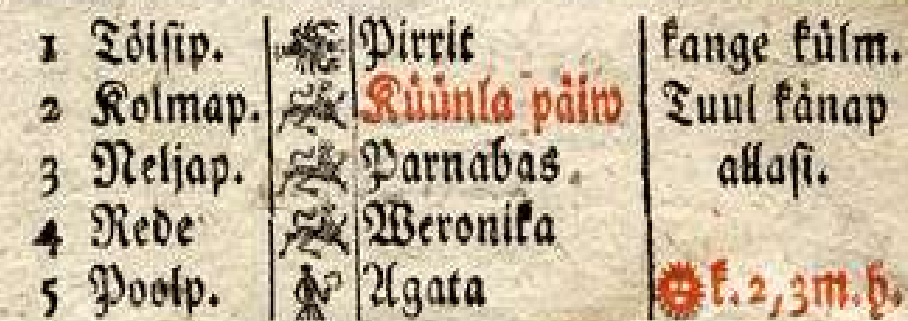 1 Töisip. Pirrit kange külm.
2 Kolmap. Küünla päiw Tuul känap
3 Neljap. Parnabas. allasi.
4 Rede Weronika
5 Poolp. Agata k. 2, 3 m. h.